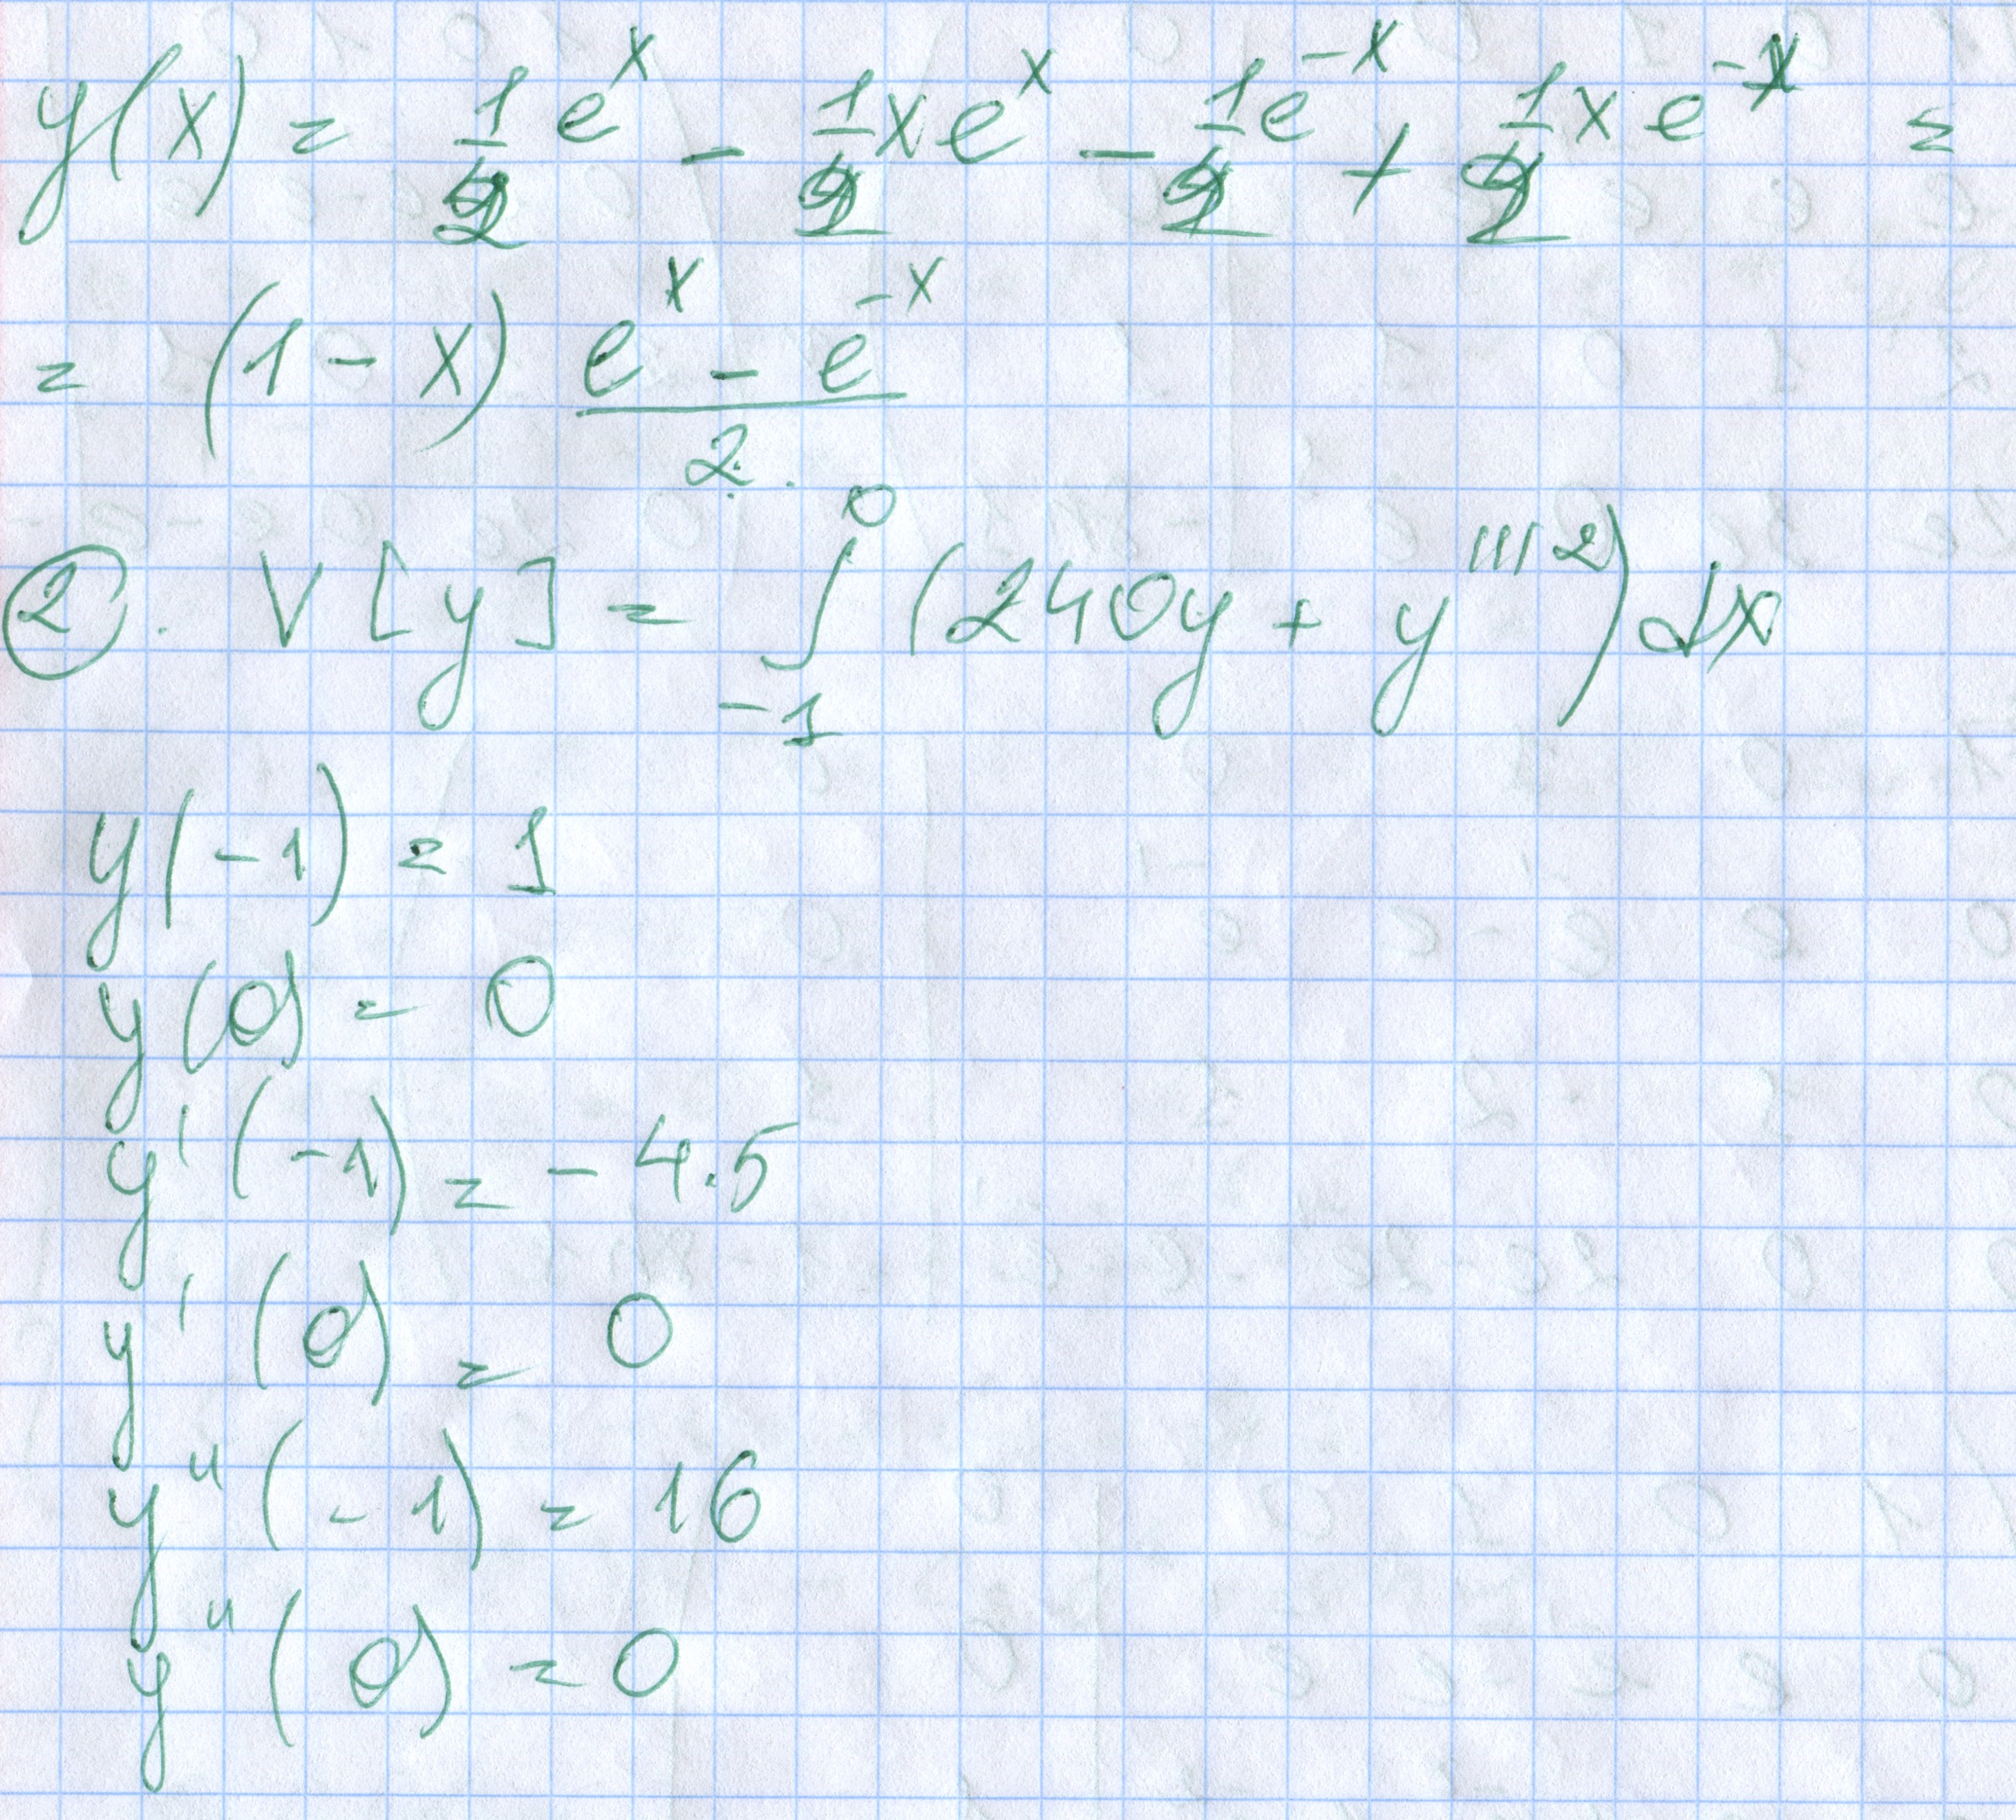 y(x) = 1/2 e^x - 1/2 x e^x - 1/2 e^-x + 1/2 x e^-x =
= (1 - x) (e^x - e^-x)/2.
2. V[y] = ∫_-1^0 (240y + y'''^2) dx
y(-1) = 1
y(0) = 0
y'(-1) = -4.5
y'(0) = 0
y''(-1) = 16
y''(0) = 0